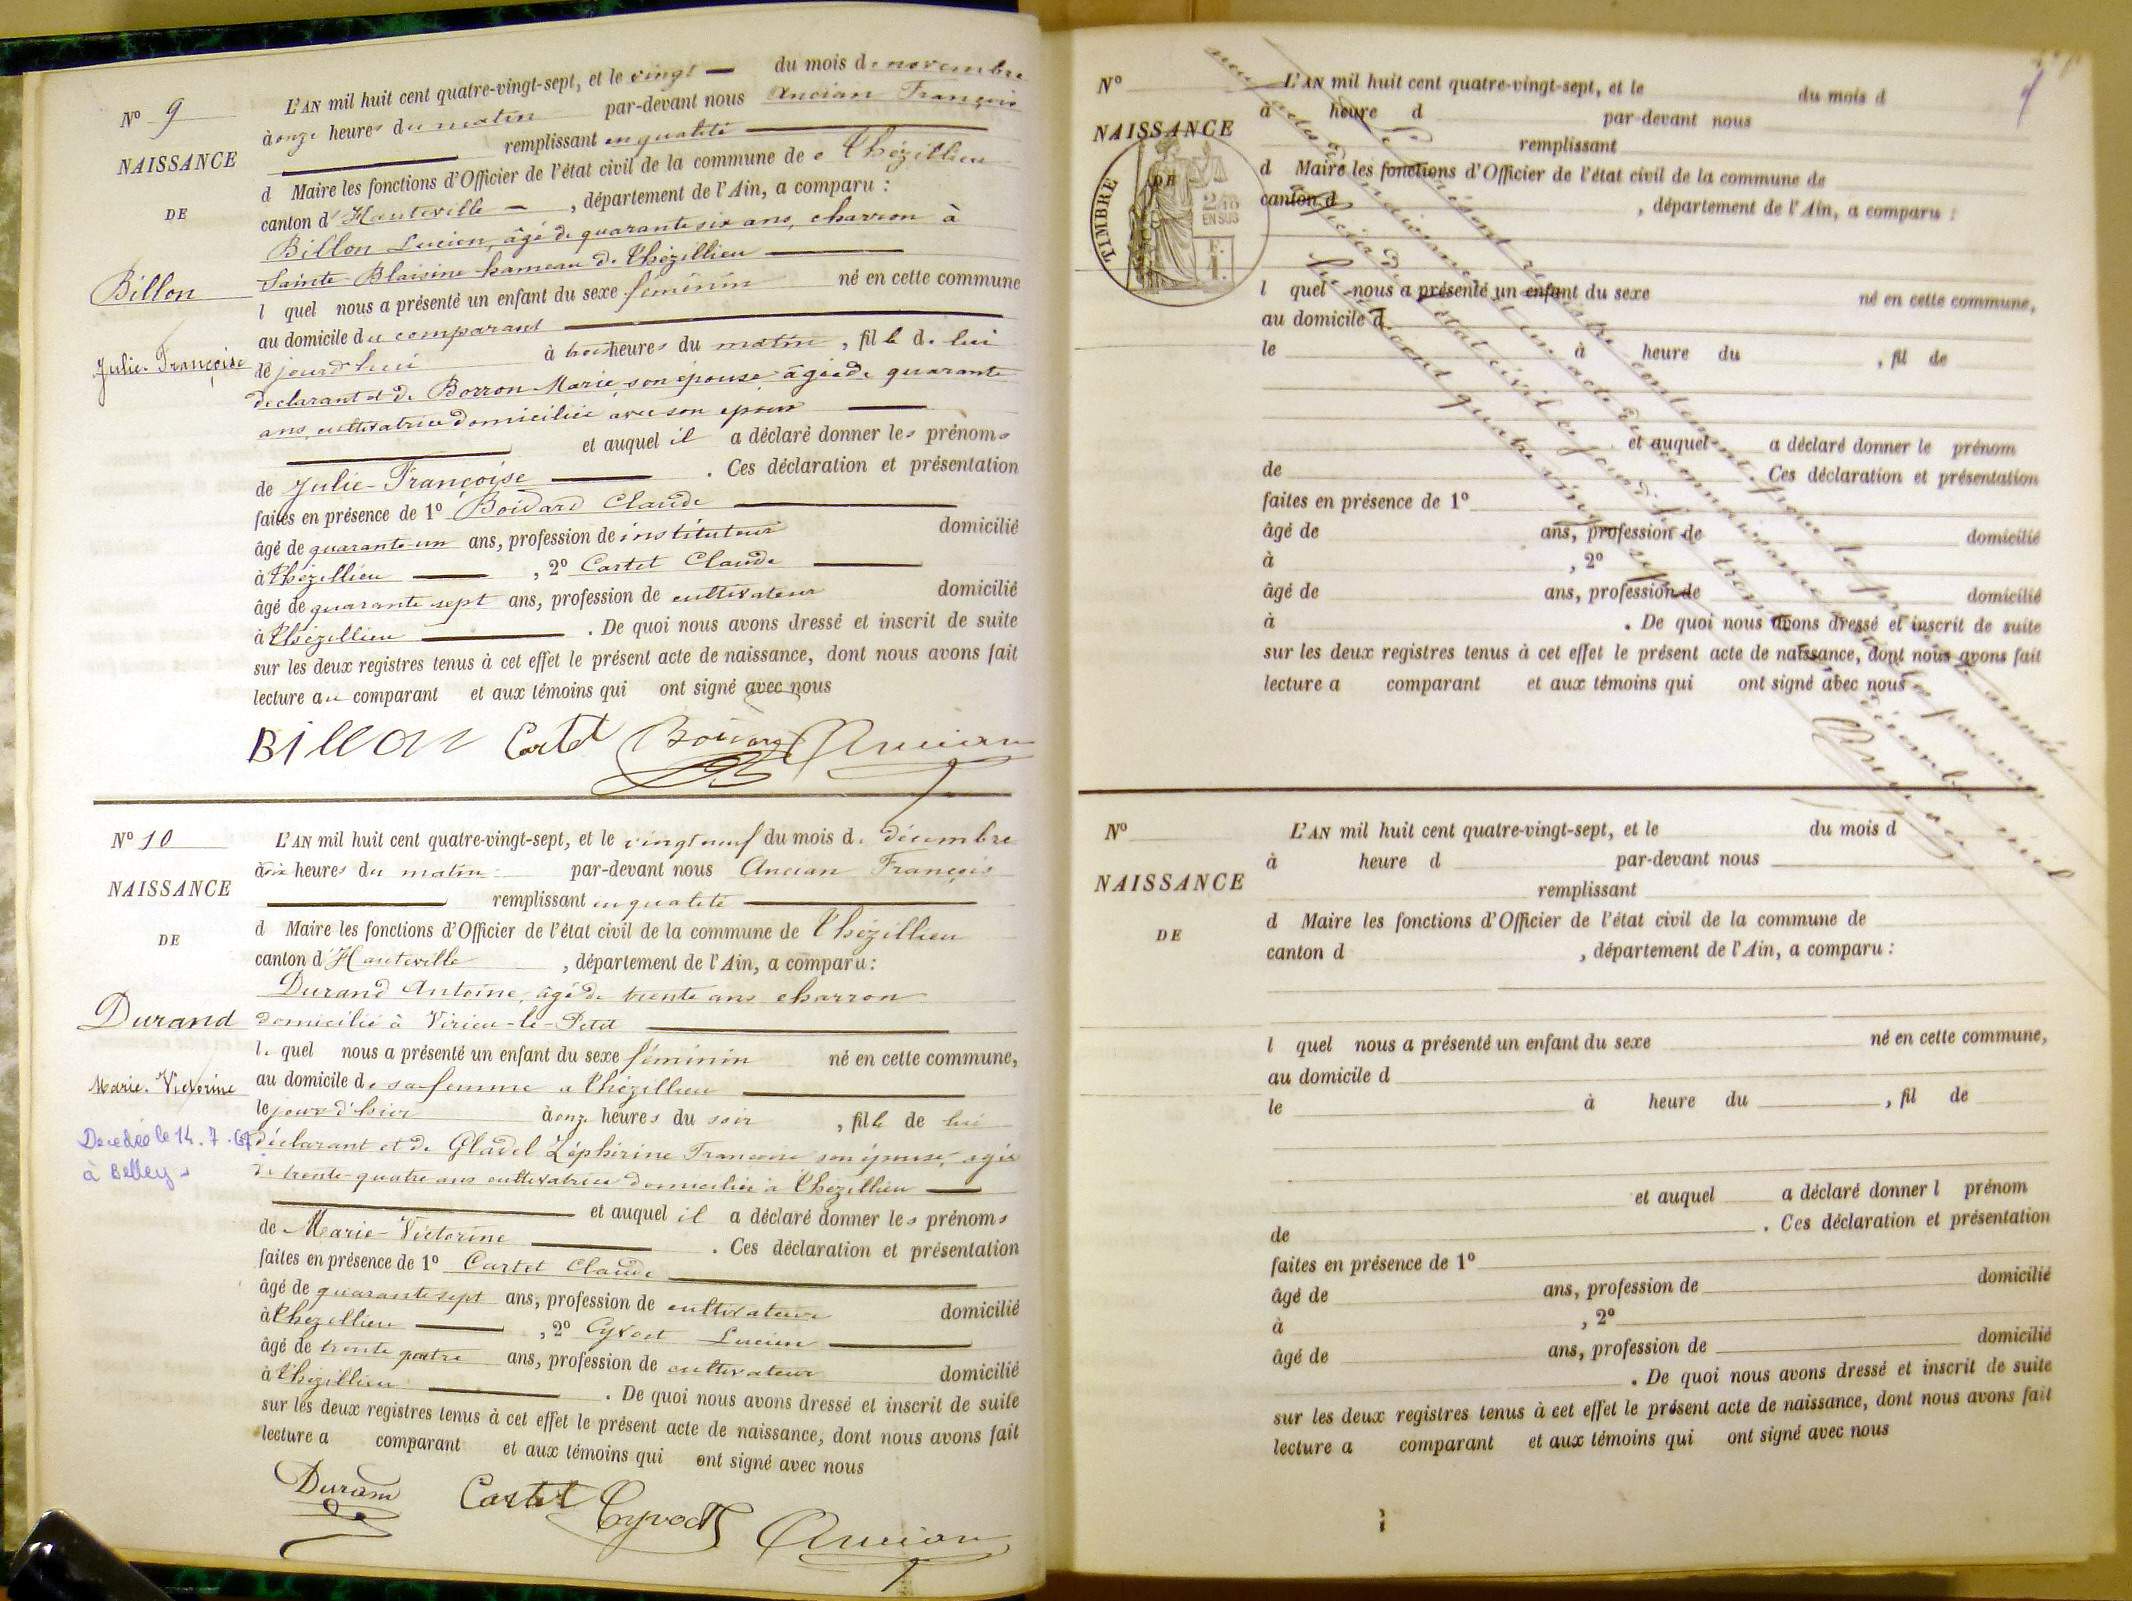 N° 9
NAISSANCE
DE
Billon
Julie-Françoise
L'AN mil huit cent quatre-vingt-sept, et le vingt — du mois de novembre
à onze heures du matin par-devant nous Ancian François
remplissant en qualité
d Maire les fonctions d'Officier de l'état civil de la commune de Thézillieu
canton d'Hauteville — , département de l'Ain, a comparu :
Billon Lucien, âgé de quarante six ans, charron à
Sainte-Blaisine hameau de Thézillieu
l quel nous a présenté un enfant du sexe féminin né en cette commune
au domicile du comparant
de jourd'hui à trois heures du matin , fille de lui
déclarant et de Borron Marie, son épouse âgée de quarante
ans, cultivatrice domiciliée avec son époux
et auquel il a déclaré donner les prénoms
de Julie-Françoise . Ces déclaration et présentation
faites en présence de 1° Boidard Claude
âgé de quarante-un ans, profession de instituteur domicilié
à Thézillieu , 2° Cartet Claude
âgé de quarante sept ans, profession de cultivateur domicilié
à Thézillieu . De quoi nous avons dressé et inscrit de suite
sur les deux registres tenus à cet effet le présent acte de naissance, dont nous avons fait
lecture au comparant et aux témoins qui ont signé avec nous
Billon Cartet Boidard Ancian
N° 10
NAISSANCE
DE
Durand
Marie-Victorine
Decedée le 14.7.67
à Belley
L'AN mil huit cent quatre-vingt-sept, et le vingt neuf du mois de décembre
à six heures du matin par-devant nous Ancian François
remplissant en qualité
d Maire les fonctions d'Officier de l'état civil de la commune de Thézillieu
canton d'Hauteville , département de l'Ain, a comparu :
Durand Antoine, âgé de trente ans charron
domicilié à Virieu-le-Petit
le quel nous a présenté un enfant du sexe féminin né en cette commune,
au domicile de sa femme a Thézillieu
le jour d'hier à onze heures du soir , fille de lui
déclarant et de Gladel Zéphirine Françoise son épouse, agée
de trente-quatre ans cultivatrice domiciliée à Thézillieu
et auquel il a déclaré donner les prénoms
de Marie-Victorine . Ces déclaration et présentation
faites en présence de 1° Cartet Claude
âgé de quarante sept ans, profession de cultivateur domicilié
à Thézillieu , 2° Cyvoct Lucien
âgé de trente quatre ans, profession de cultivateur domicilié
à Thézillieu . De quoi nous avons dressé et inscrit de suite
sur les deux registres tenus à cet effet le présent acte de naissance, dont nous avons fait
lecture a comparant et aux témoins qui ont signé avec nous
Durand Cartet Cyvoct Ancian
N°
NAISSANCE
DE
TIMBRE
2/10
EN SUS
L'AN mil huit cent quatre-vingt-sept, et le du mois d
à heure d par-devant nous
remplissant
d Maire les fonctions d'Officier de l'état civil de la commune de
canton d , département de l'Ain, a comparu :
l quel nous a présenté un enfant du sexe né en cette commune,
au domicile d
le à heure du , fil de
et auquel a déclaré donner le prénom
de Ces déclaration et présentation
faites en présence de 1°
âgé de ans, profession de domicilié
à , 2°
âgé de ans, profession de domicilié
à . De quoi nous avons dressé et inscrit de suite
sur les deux registres tenus à cet effet le présent acte de naissance, dont nous avons fait
lecture a comparant et aux témoins qui ont signé avec nous
Le présent registre contenant pour la présente année
N°
NAISSANCE
DE
L'AN mil huit cent quatre-vingt-sept, et le du mois d
à heure d par-devant nous
remplissant
d Maire les fonctions d'Officier de l'état civil de la commune de
canton d , département de l'Ain, a comparu :
l quel nous a présenté un enfant du sexe né en cette commune,
au domicile d
le à heure du , fil de
et auquel a déclaré donner l prénom
de . Ces déclaration et présentation
faites en présence de 1°
âgé de ans, profession de domicilié
à , 2°
âgé de ans, profession de domicilié
. De quoi nous avons dressé et inscrit de suite
sur les deux registres tenus à cet effet le présent acte de naissance, dont nous avons fait
lecture a comparant et aux témoins qui ont signé avec nous